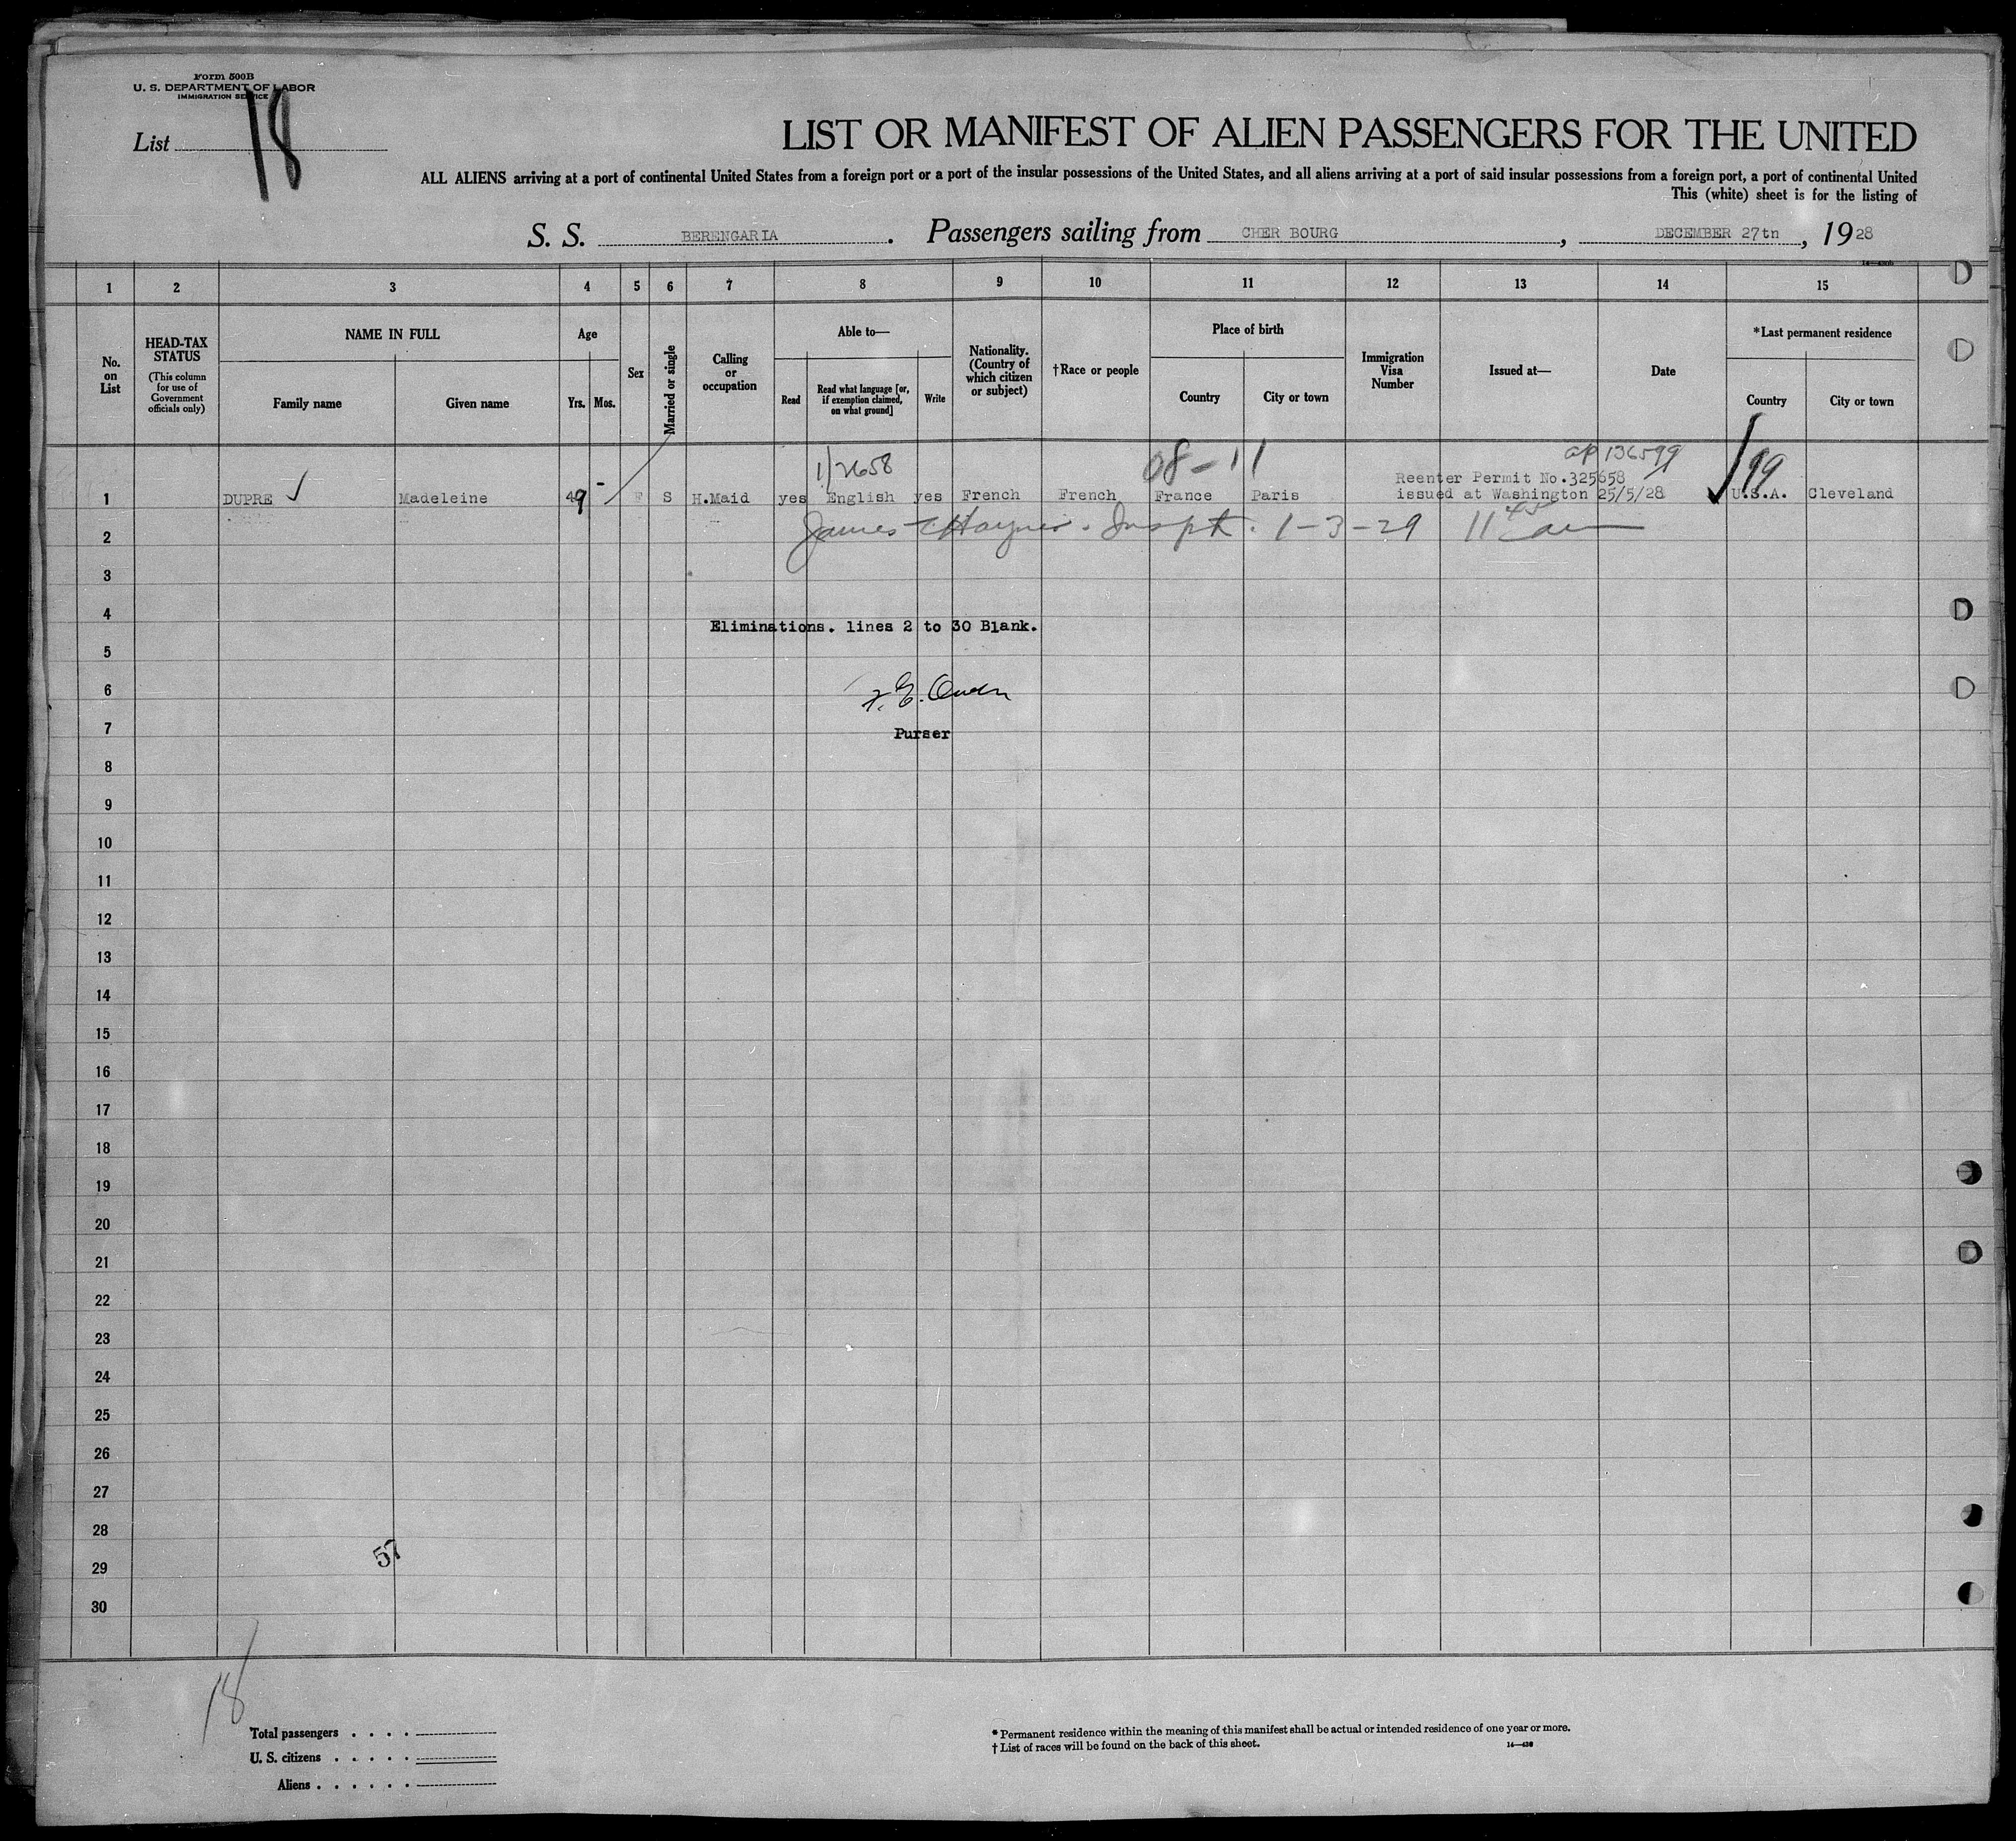 Form 500B
U. S. DEPARTMENT OF LABOR
IMMIGRATION SERVICE
List 18
LIST OR MANIFEST OF ALIEN PASSENGERS FOR THE UNITED
ALL ALIENS arriving at a port of continental United States from a foreign port or a port of the insular possessions of the United States, and all aliens arriving at a port of said insular possessions from a foreign port, a port of continental United
This (white) sheet is for the listing of
S. S. BERENGARIA. Passengers sailing from CHER BOURG, DECEMBER 27th, 1928
1 2 3 4 5 6 7 8 9 10 11 12 13 14 15
No. on List
HEAD-TAX STATUS (This column for use of Government officials only)
NAME IN FULL
Family name Given name
Age
Yrs. Mos.
Sex
Married or single
Calling or occupation
Able to—
Read Read what language [or, if exemption claimed, on what ground] Write
Nationality. (Country of which citizen or subject)
†Race or people
Place of birth
Country City or town
Immigration Visa Number
Issued at—
Date
*Last permanent residence
Country City or town
1/2658 08-11 136599 99
Reenter Permit No.325658
1 DUPRE Madeleine 49 F S H.Maid yes English yes French French France Paris issued at Washington 25/5/28 U.S.A. Cleveland
2 James Inspt. 1-3-29 11 45 am
3
4
Eliminations. lines 2 to 30 Blank.
5
6 F. E. Owen
7 Purser
8
9
10
11
12
13
14
15
16
17
18
19
20
21
22
23
24
25
26
27
28
57
29
30
18
Total passengers . . . .
U. S. citizens . . . . .
Aliens . . . . . .
* Permanent residence within the meaning of this manifest shall be actual or intended residence of one year or more.
† List of races will be found on the back of this sheet.
14—430